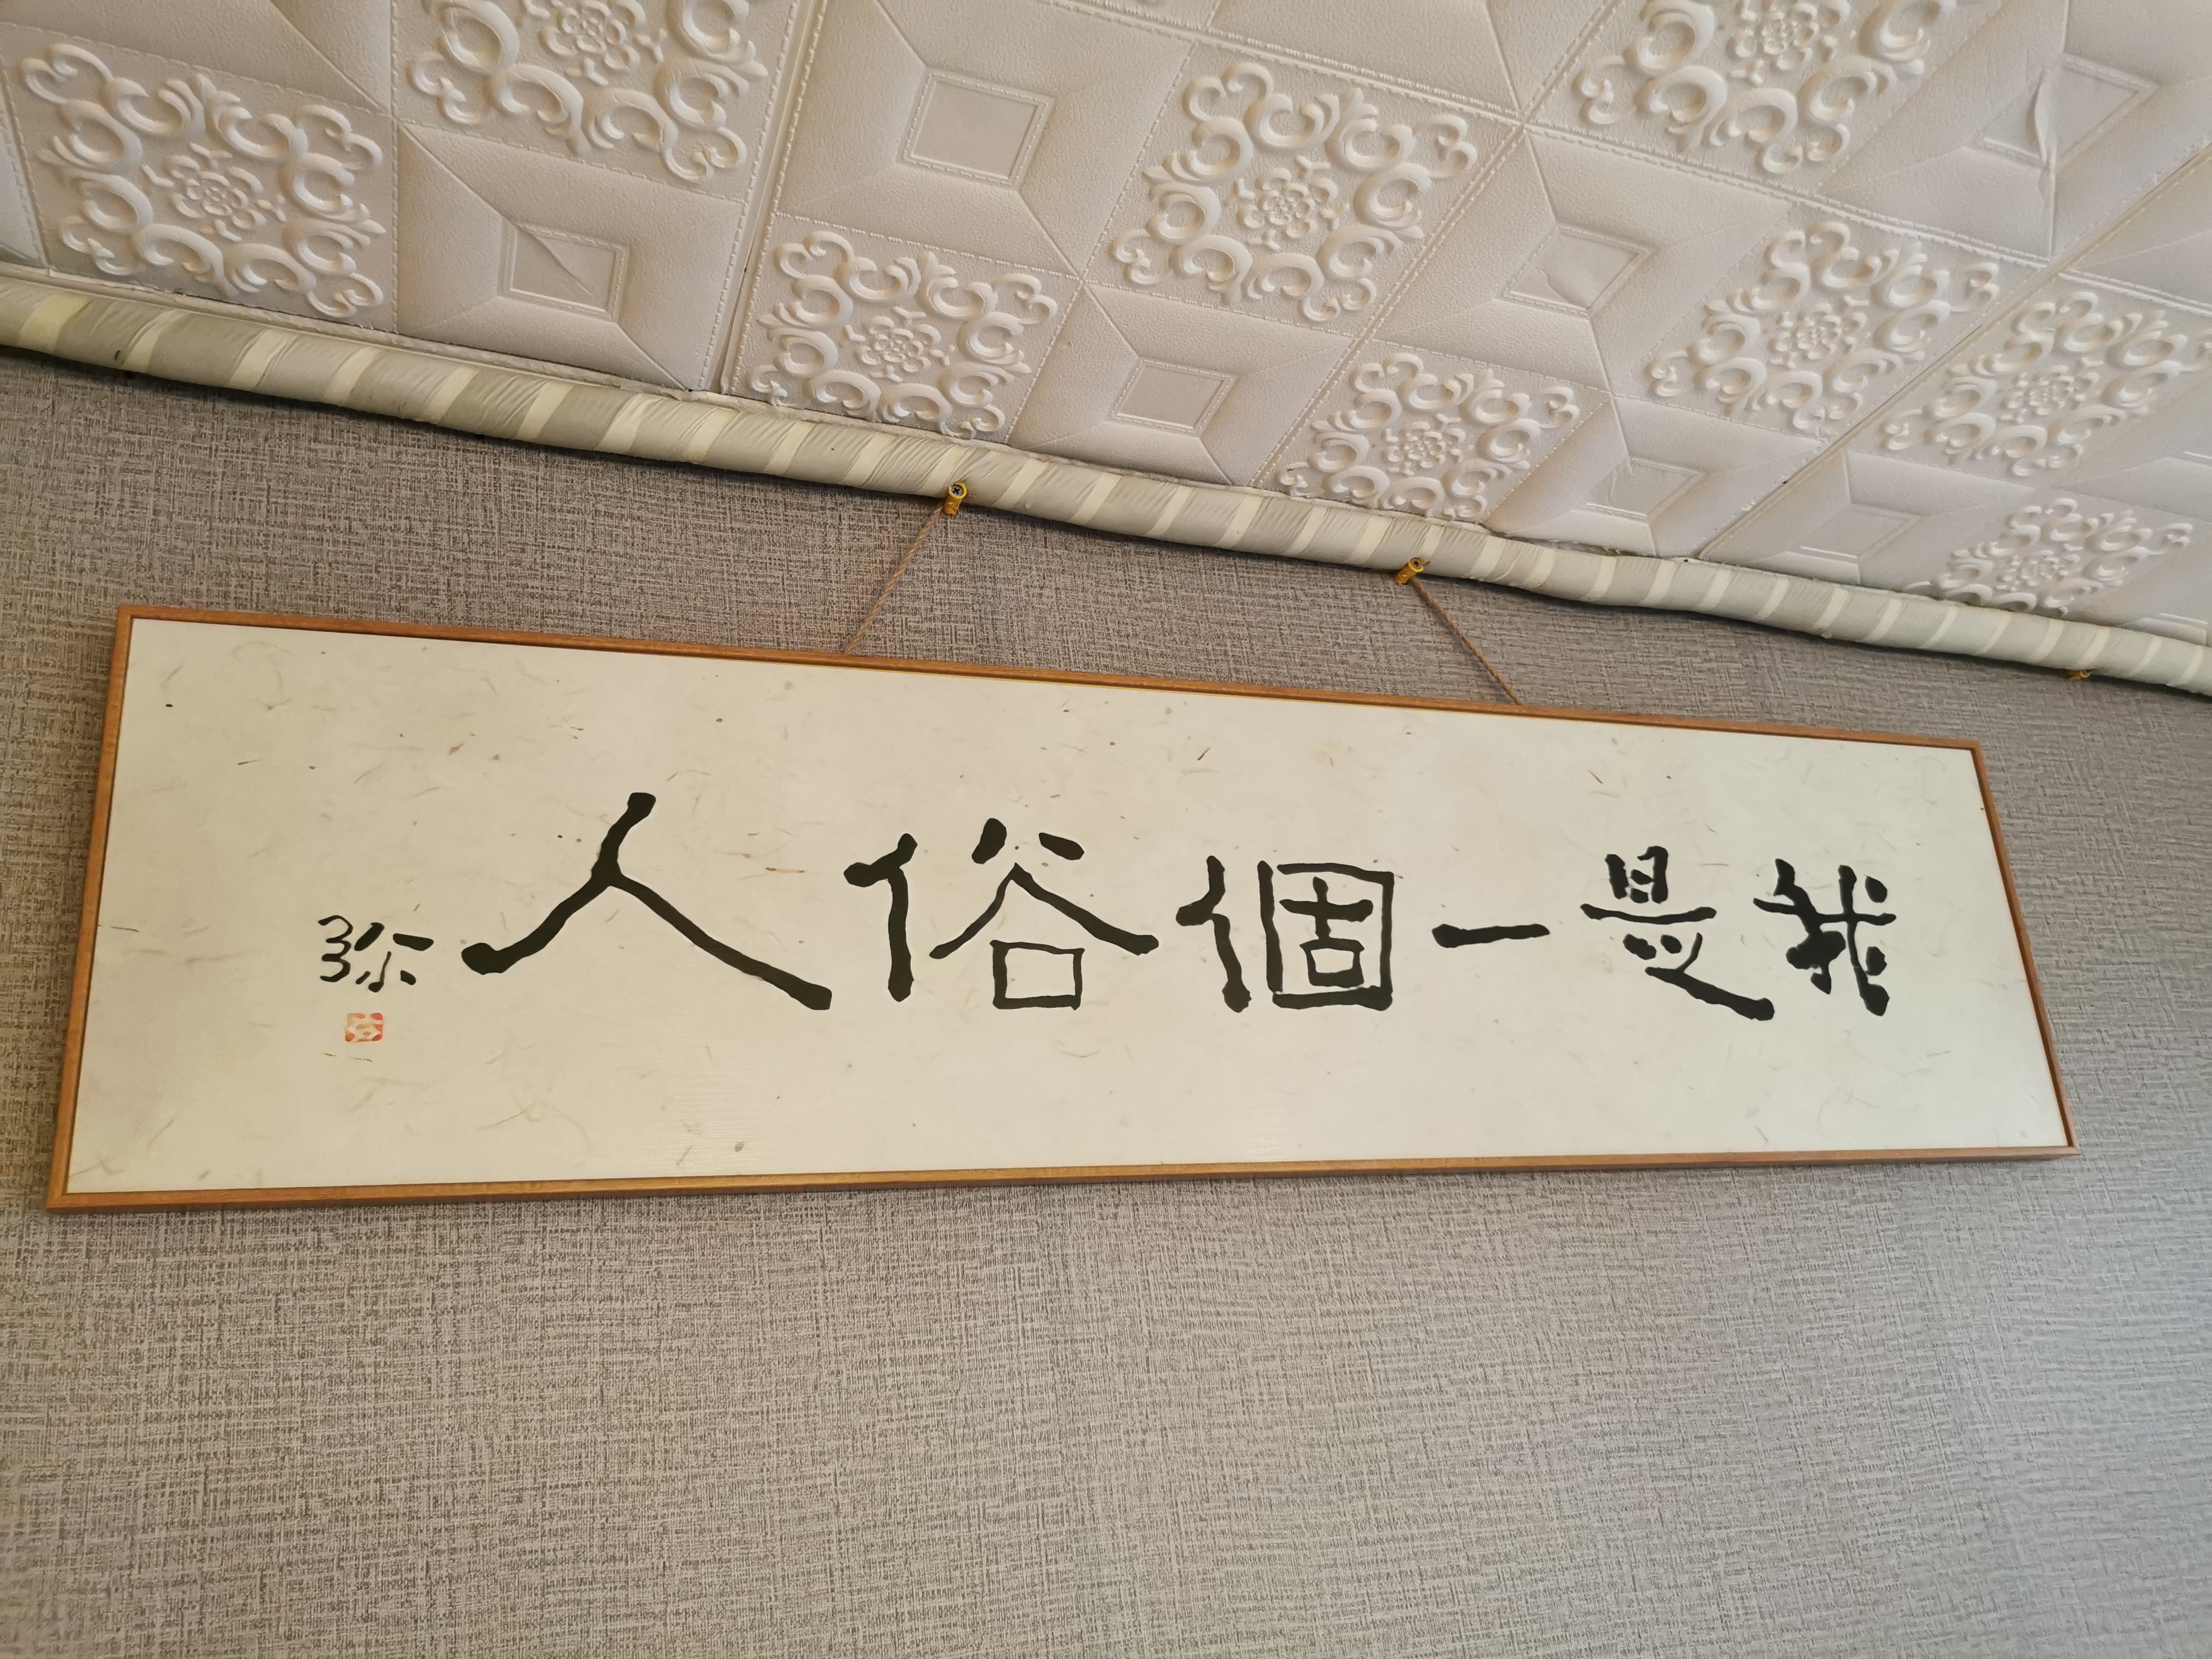 我是一個俗人
弥